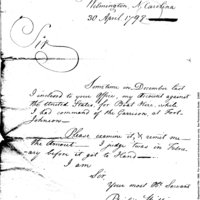 Wilmington N. Carolina
30 April 1792
Sir
Sometime in December last
I inclosed to your Office, my Account against
the United States, for Boat Hire while
I had command of the Garrison at Fort
Johnson —
Please examine it, & remit me
the Amount — I judge twas in
before it got to Hand —
I am
Sir
Your most Obt Servant